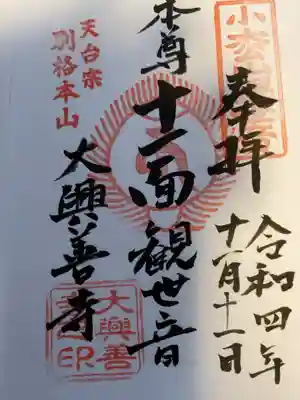 奉拝
令和四年
十一月十一日
本尊
十一面観世音
天台宗
別格本山
大興善寺
大興善
寺印